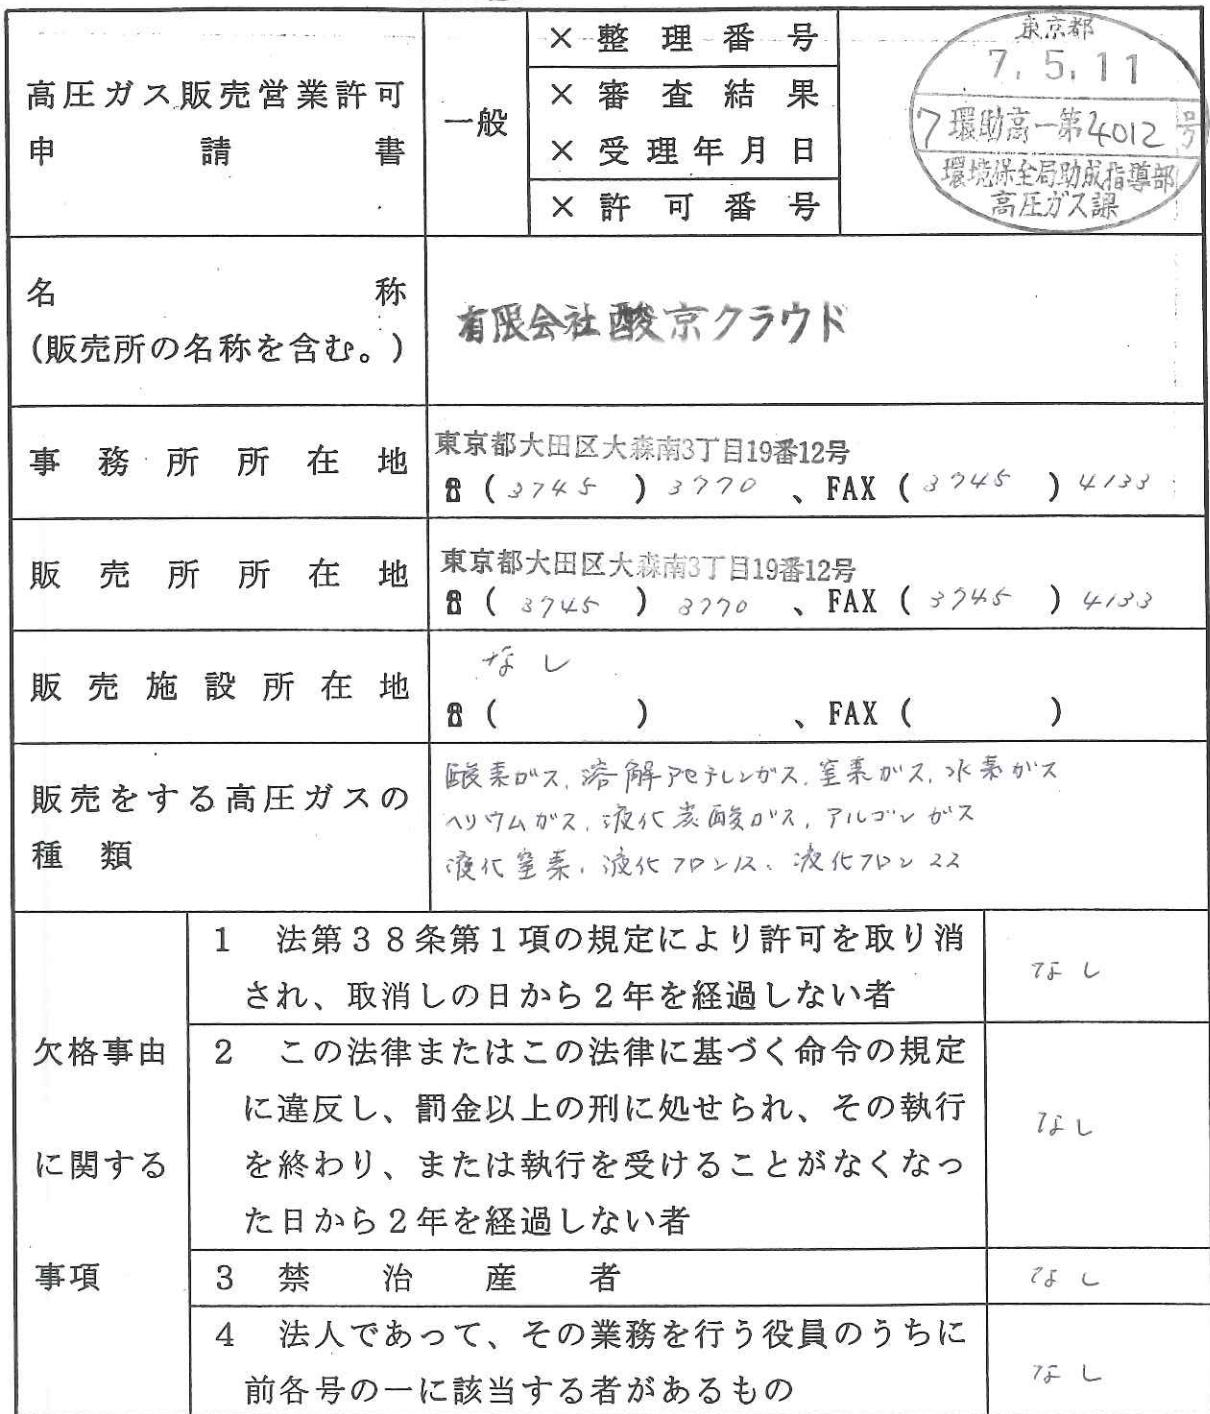 高圧ガス販売営業許可
申請書
一般
×整理番号
×審査結果
×受理年月日
×許可番号
東京都
7.5.11
7環助高一第4012号
環境保全局助成指導部
高圧ガス課
名称
(販売所の名称を含む。)
有限会社酸京クラウド
事務所所在地
東京都大田区大森南3丁目19番12号
☎(3745)3770、FAX(3745)4133
販売所所在地
東京都大田区大森南3丁目19番12号
☎(3745)3770、FAX(3745)4133
販売施設所在地
なし
☎( )、FAX( )
販売をする高圧ガスの
種類
酸素ガス,溶解アセチレンガス,窒素ガス,水素ガス
ヘリウムガス,液化炭酸ガス,アルゴンガス
液化窒素,液化フロン12、液化フロン22
欠格事由
に関する
事項
1 法第38条第1項の規定により許可を取り消
され、取消しの日から2年を経過しない者
なし
2 この法律またはこの法律に基づく命令の規定
に違反し、罰金以上の刑に処せられ、その執行
を終わり、または執行を受けることがなくなっ
た日から2年を経過しない者
なし
3 禁治産者
なし
4 法人であって、その業務を行う役員のうちに
前各号の一に該当する者があるもの
なし